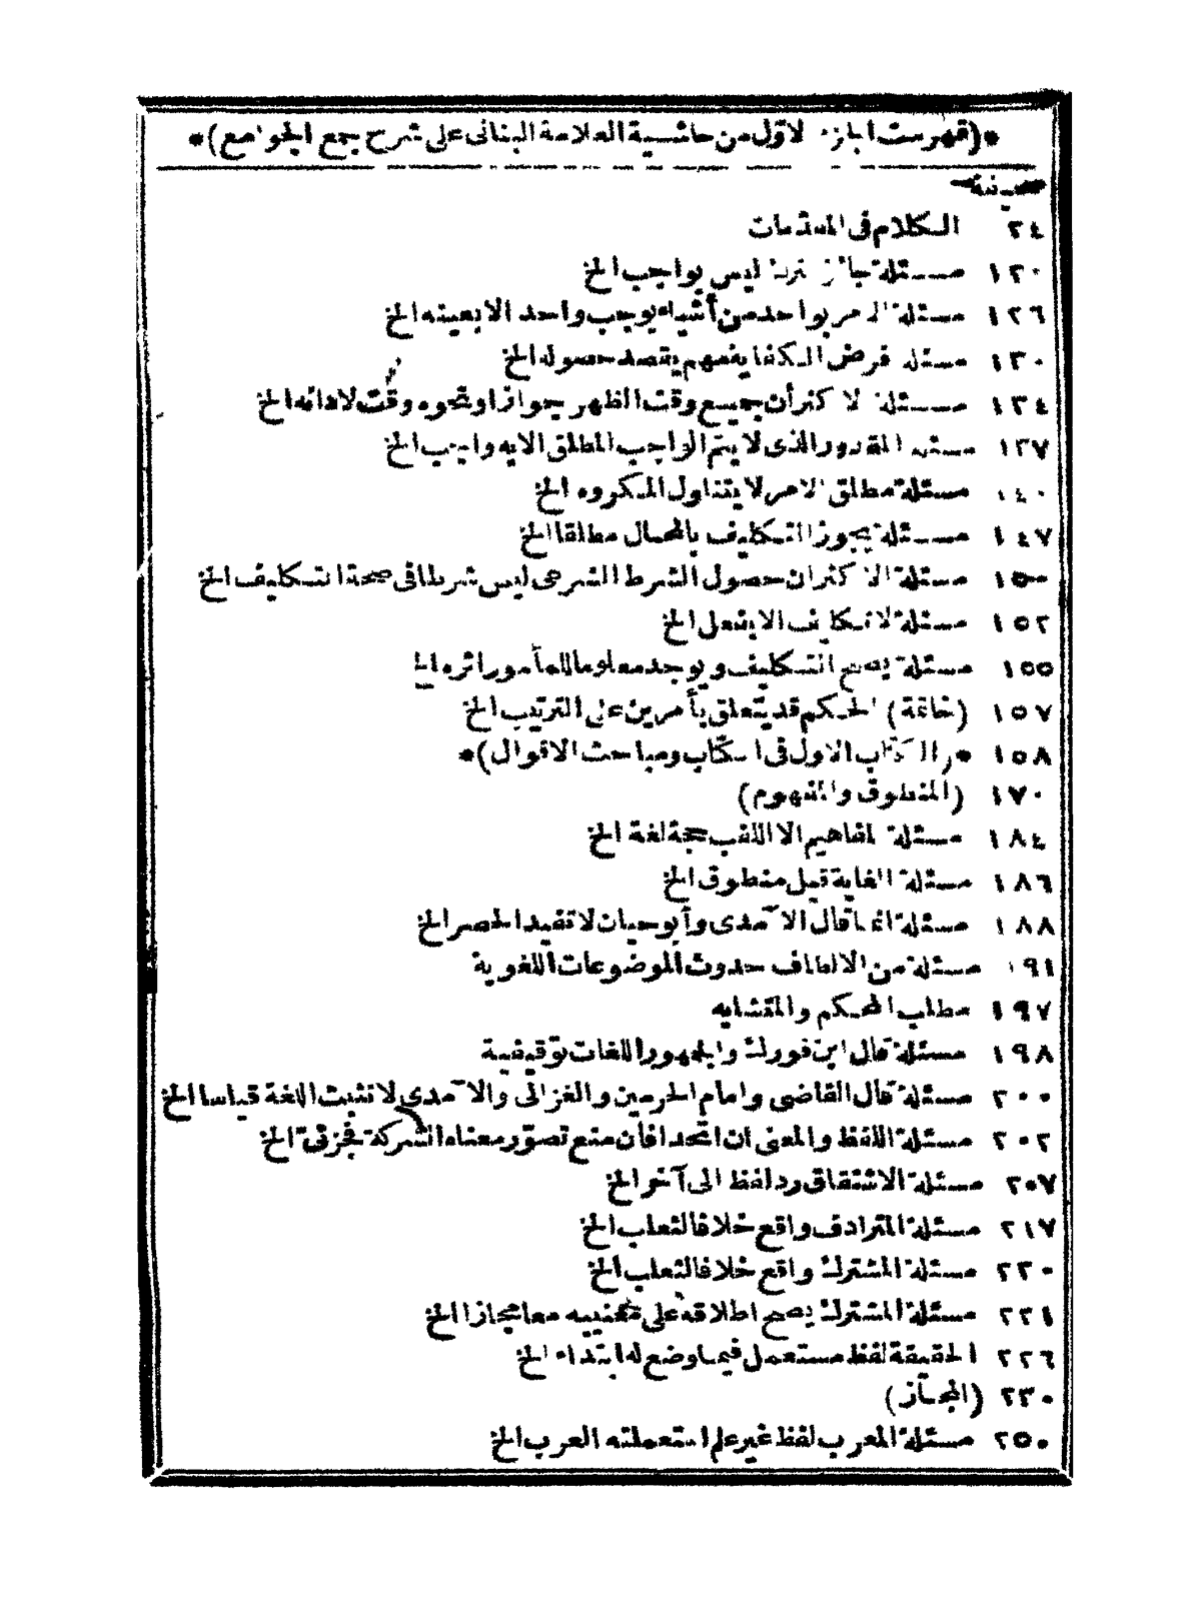 *(فهرست الجزء الاول من حاشية العلامة البناني على شرح جمع الجوامع)*
صحيفة
٢٤ الكلام في المقدمات
١٢٠ مسئلة جائز الترك ليس بواجب الخ
١٢٦ مسئلة الامر بواحد من أشياء يوجب واحد الابعينه الخ
١٣٠ مسئلة فرض الكفاية مهم يقصد حصوله الخ
١٣٤ مسئلة الاكثر أن جميع وقت الظهر جوازا ونحوه وقت لادائه الخ
١٣٧ مسئلة المقدور الذى لا يتم الواجب المطلق الا به واجب الخ
١٤٠ مسئلة مطلق الامر لا يتناول المكروه الخ
١٤٧ مسئلة يجوز التكليف بالمحال مطلقا الخ
١٥٠ مسئلة الاكثر ان حصول الشرط الشرعى ليس شرطا فى صحة التكليف الخ
١٥٢ مسئلة لا تكليف الا بفعل الخ
١٥٥ مسئلة يصح التكليف ويوجد معلوما للمأمور اثره الخ
١٥٧ (خاتمة) الحكم قد يتعلق بأمرين على الترتيب الخ
١٥٨ *(الكتاب الاول فى الكتاب ومباحث الاقوال)*
١٧٠ (المنطوق والمفهوم)
١٨٤ مسئلة المفاهيم الا اللقب حجة لغة الخ
١٨٦ مسئلة الغاية قيل منطوق الخ
١٨٨ مسئلة انما قال الآمدى وأبو حيان لا تفيد الحصر الخ
١٩١ مسئلة من الالطاف حدوث الموضوعات اللغوية
١٩٧ مطلب المحكم والمتشابه
١٩٨ مسئلة قال ابن فورك والجمهور اللغات توقيفية
٢٠٠ مسئلة قال القاضى وامام الحرمين والغزالى والآمدى لا تثبت اللغة قياسا الخ
٢٠٢ مسئلة اللفظ والمعنى ان اتحدا فان منع تصور معناه الشركة فجزئى الخ
٢٠٧ مسئلة الاشتقاق رد لفظ الى آخر الخ
٢١٧ مسئلة المترادف واقع خلافا لثعلب الخ
٢٢٠ مسئلة المشترك واقع خلافا لثعلب الخ
٢٢١ مسئلة المشترك يصح اطلاقه على معنييه معا مجازا الخ
٢٢٦ الحقيقة لفظ مستعمل فيما وضع له ابتداء الخ
٢٣٠ (المجاز)
٢٥٠ مسئلة المعرب لفظ غير علم استعملته العرب الخ